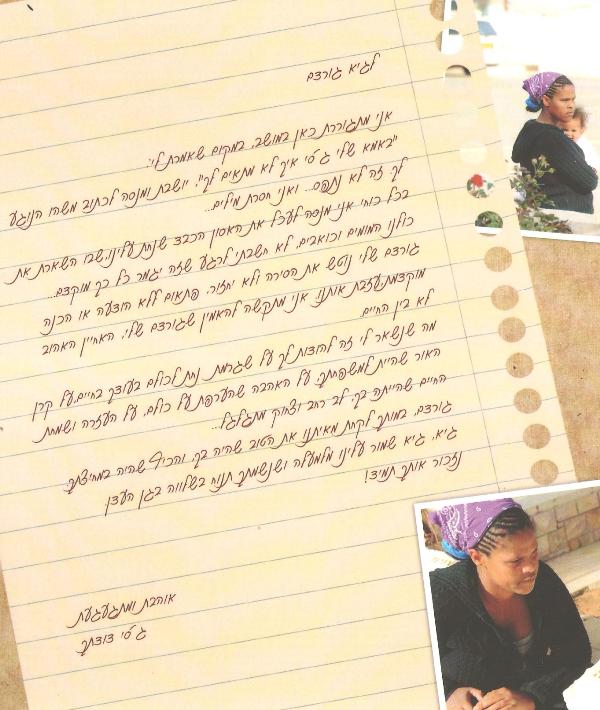 לגיא גורדם
אני מתגוררת כאן במושב, במקום שאמרת לי:
"באמא שלי ג'סי איך לא מתאים לך", יושבת ומנסה לכתוב משהו הנוגע
לך. זה לא נתפס... ואני חסרת מילים...
בכל כוחי אני מנסה לעכל את האסון הכבד שנחת עלינו, שבו השארת את
כולנו המומים וכואבים, לא חשבתי לרגע שזה יגמר כל כך מוקדם...
גורדם שלי נוטש את הסירה ולא יחזור, פתאום ללא הודעה או הכנה
מוקדמת, עזבת אותנו. אני מתקשה להאמין שגורדם שלי, האחיין האהוב
לא בין החיים.
מה שנשאר לי זה להודות לך על שגרמת נחת לכולם בעודך בחיים, על קרן
האור שהיית למשפחתך, על האהבה שהערפת על כולם, על העזרה ושמחת
החיים שהייתה בך, לב רחב וצחוק מתגלגל...
גורדם, במותך לקחת מאיתנו את הטוב שהיה בך, והכיף שהיה במחיצתך.
גיא, גיא שמור עלינו מלמעלה ושנשמתך תנוח בשלווה בגן העדן
נזכור אותך תמיד!
אוהבת ומתגעגעת
ג'סי דודתך